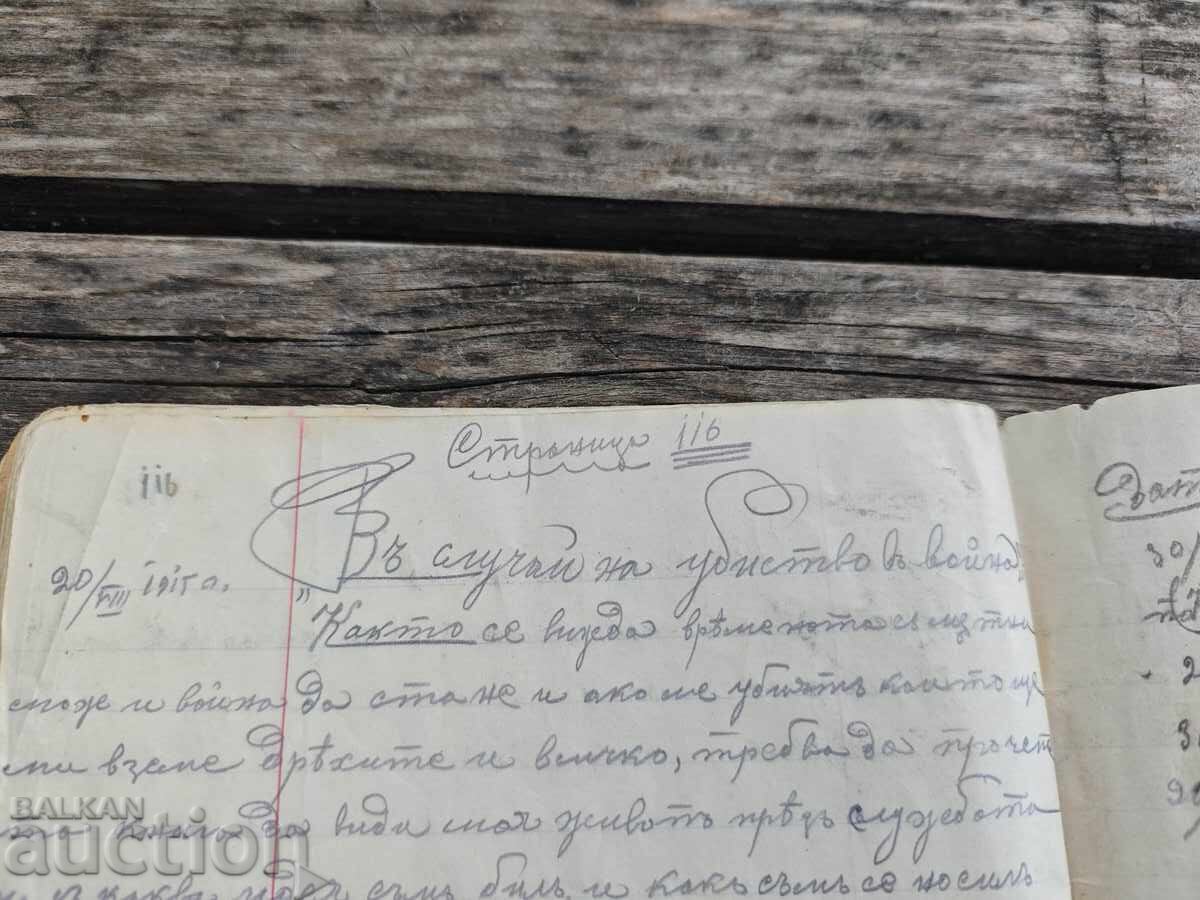 Страница 116
116
Въ случай на убийство въ война
20/VIII 1915 г.
"Както се вижда врѣмената са мътни
може и война да стане и ако ме убиятъ който ще
ми вземе дрѣхите и всичко, требва да прочете
книга да види моя животъ прѣдъ службата
и какъвъ съмъ билъ и какъ съмъ се носилъ
Дат
30/
2
3
2
BALKAN
auction